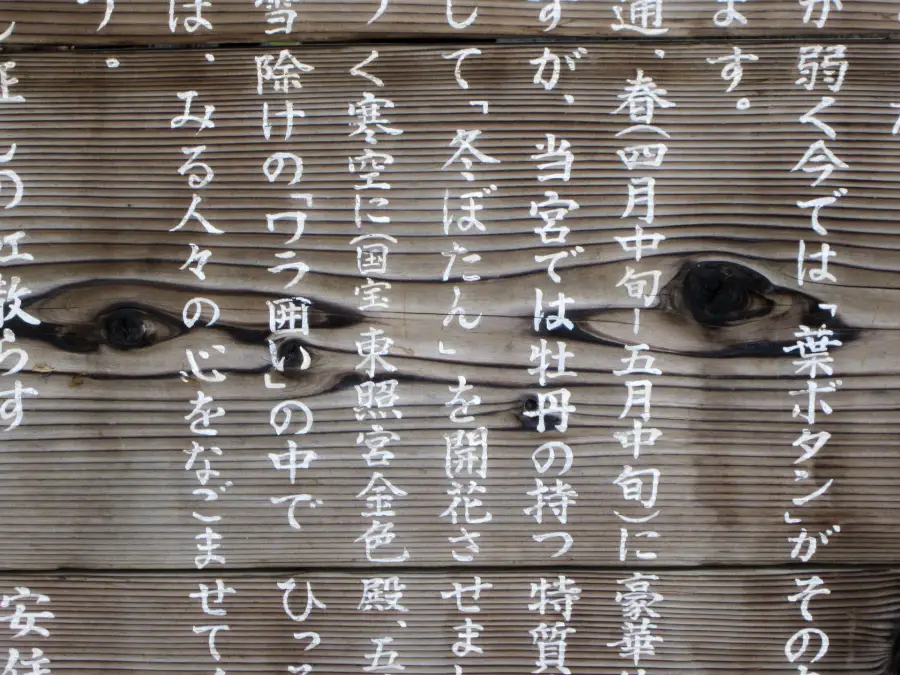 が弱く今では「葉ボタン」がその
ます。
通、春(四月中旬ー五月中旬)に豪華
すが、当宮では牡丹の持つ特質
して「冬ぼたん」を開花させま
く寒空に(国宝 東照宮金色殿、五
雪除けの「ワラ囲い」の中でひっ
は、みる人々の心をなごませて
う。
安住